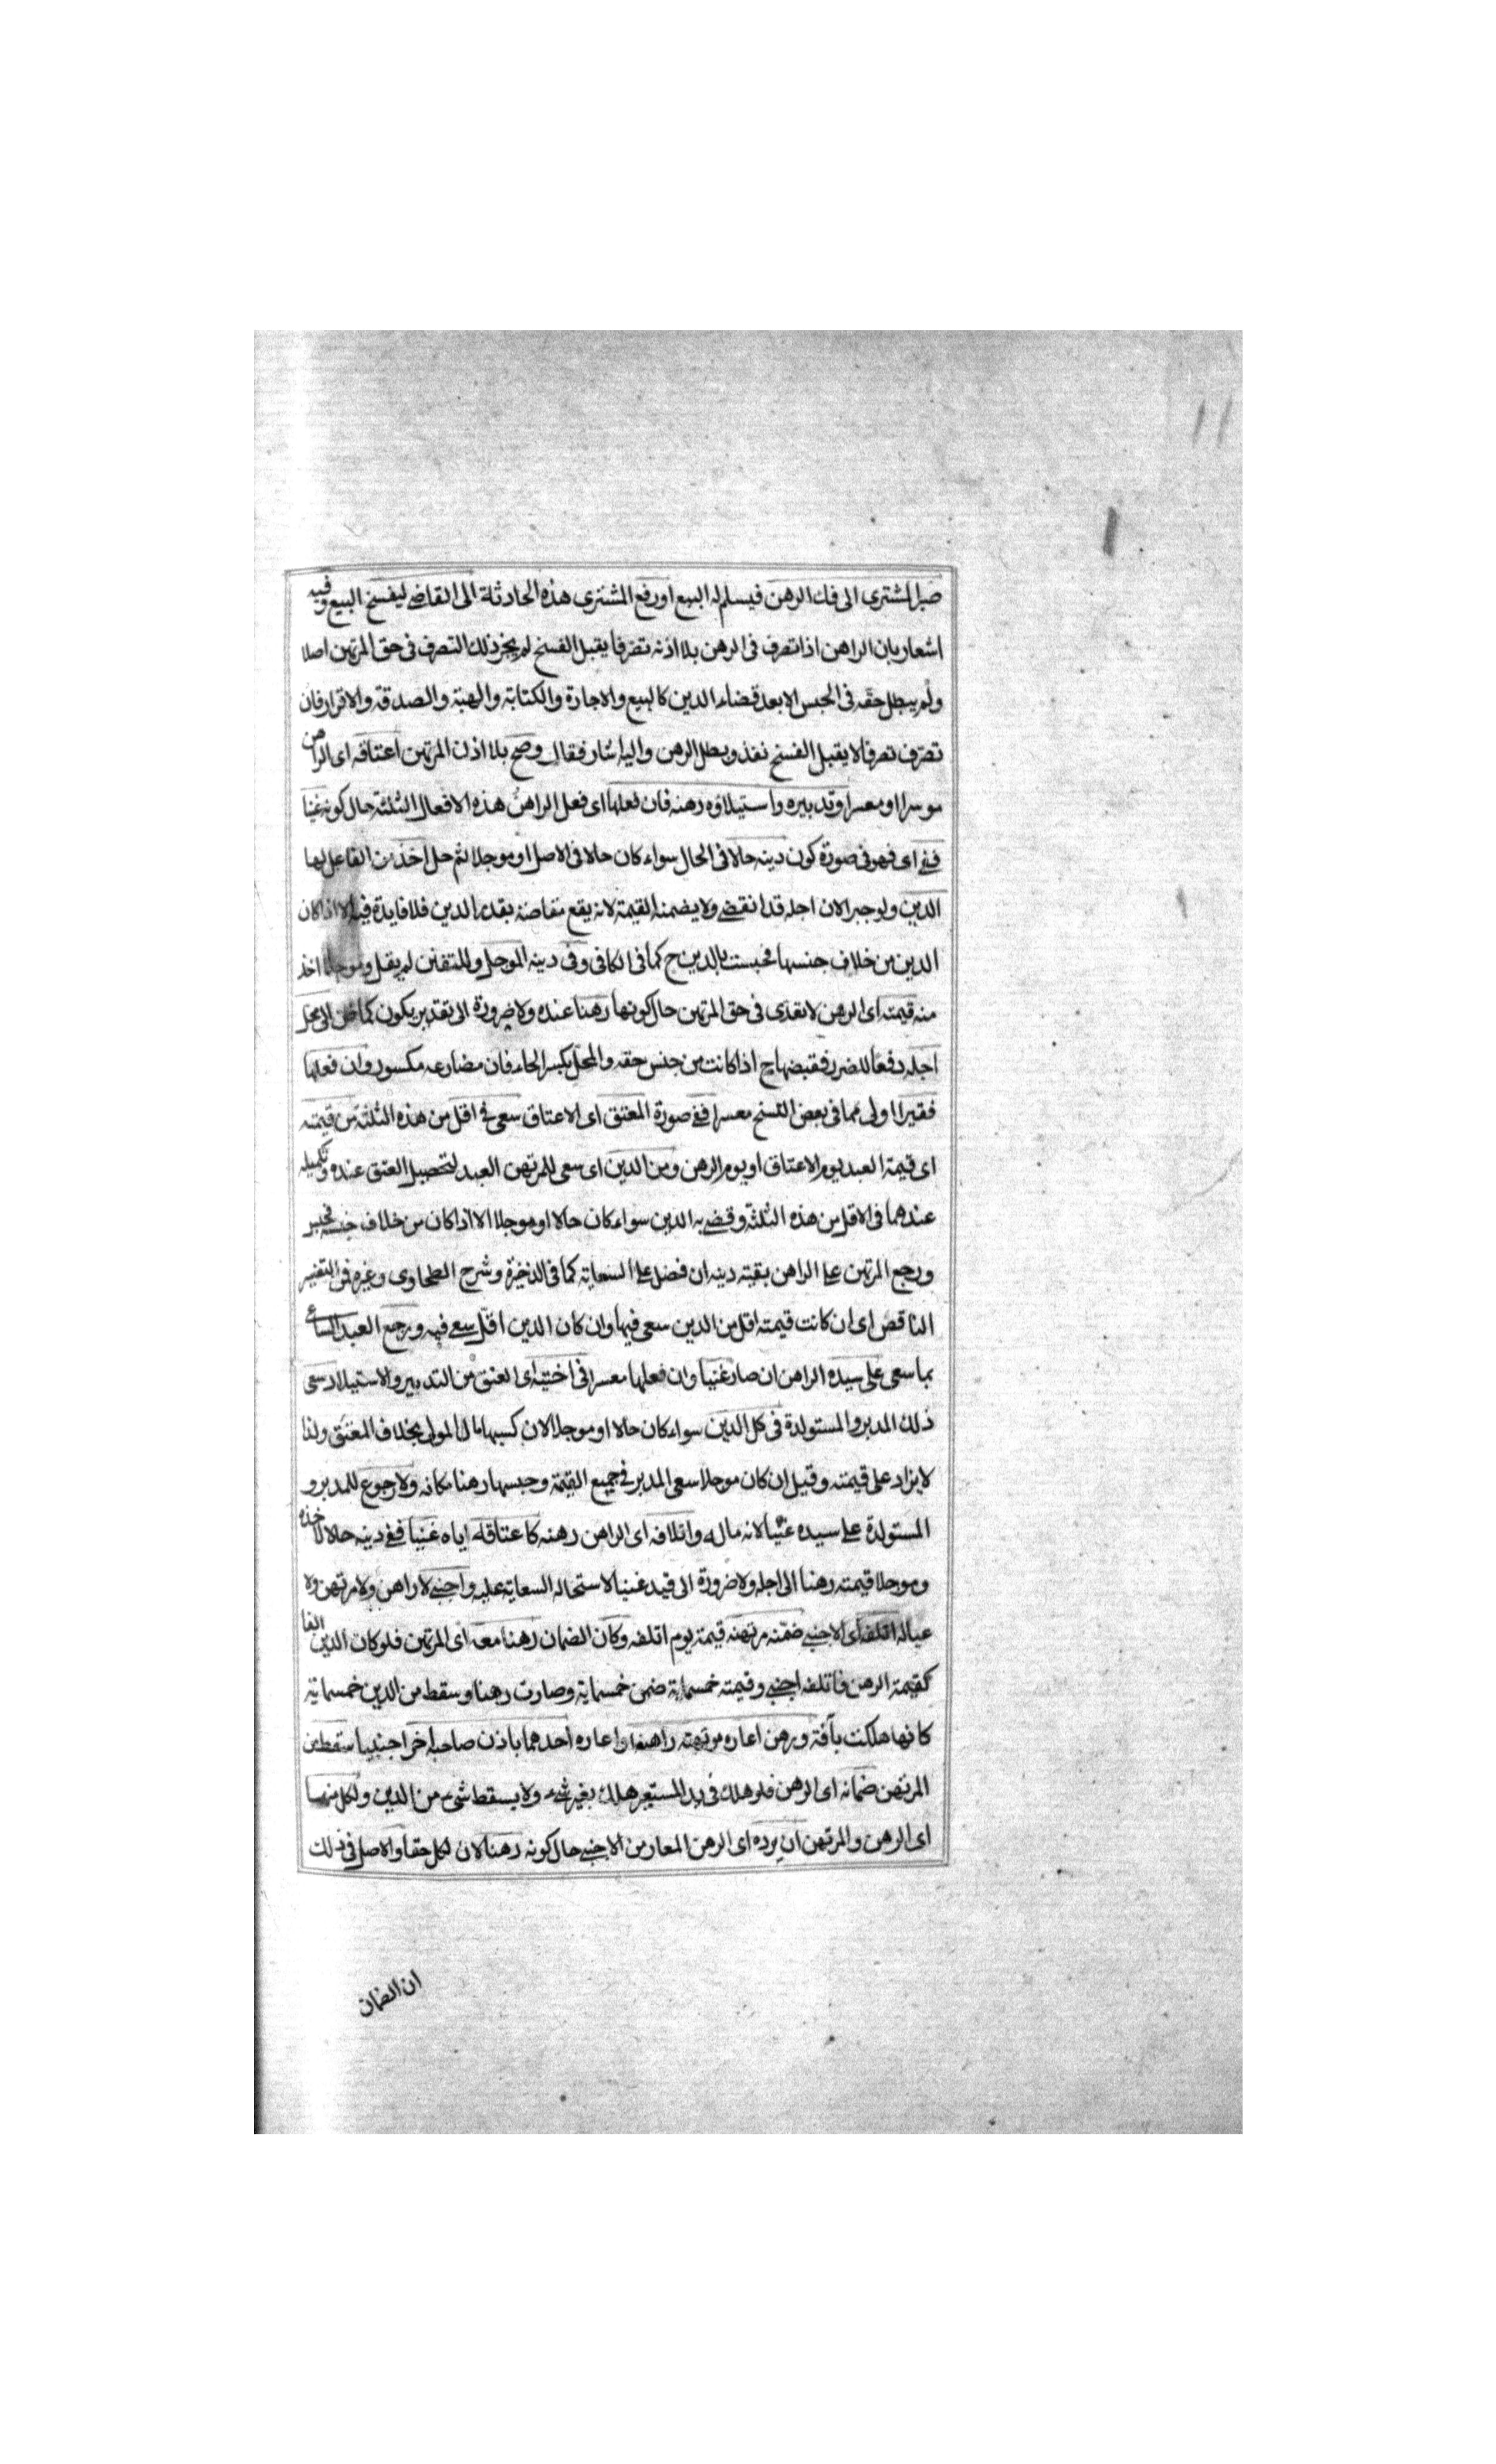 صبر المشترى الى فك الرهن فيسلم له البيع او رفع المشترى هذه الحادثة الى القاضى ليفسخ البيع وفيه
اشعار بان الراهن اذا تصرف فى الرهن بلا اذنه تصرفا يقبل الفسخ لم يجز ذلك التصرف فى حق المرتهن اصلا
ولم يبطل حقه فى الحبس الا بعد قضاء الدين كالبيع والاجارة والكتابة والهبة والصدقة والاقرار فان
تصرف تصرفا لا يقبل الفسخ نفذ وبطل الرهن واليه اشار فقال وصح بلا اذن المرتهن اعتاقه اى الراهن
موسرا او معسرا وتدبيره واستيلاؤه رهنه فان فعلها اى فعل الراهن هذه الافعال الثلثة حال كونه غنيا
ففى اى فهو فى صورة كون دينه حالا فى الحال سواء كان حالا فى الاصل او موجلا ثم حل اخذ من الفاعل لها
الدين ولو جبرا لان اجله قد انقضى ولا يضمنه القيمة لانه يقع مقاصة بقدر الدين فلا فايدة فيه الا اذا كان
الدين من خلاف جنسها فحبست بالدين ح كما فى الكافى وفى دينه الموجل وللتفنن لم يقل وموجلا اخذ
منه قيمته اى الرهن لا نقدى فى حق المرتهن حال كونها رهنا عنده ولا ضرورة الى تقدير يكون كما ظن الى محل
اجله دفعا للضرر فقبضها ح اذا كانت من جنس حقه والمحل بكسر الحاء فان مضارعه مكسور وان فعلها
فقيرا اولى مما فى بعض النسخ معسرا ففى صورة المعتق اى الاعتاق سعى فى اقل من هذه الثلثة من قيمته
اى قيمة العبد يوم الاعتاق او يوم الرهن ومن الدين اى سعى للمرتهن العبد لتحصيل العتق عنده وتكميله
عندهما فى الاقل من هذه الثلثة وقضى به الدين سواء كان حالا او موجلا الا اذا كان من خلاف جنسه فحبس
ورجع المرتهن على الراهن بقية دينه ان فضل على السعاية كما فى الذخيرة وشرح الطحاوى وغيره فمن التفسير
الناقص اى ان كانت قيمته اقل من الدين سعى فيها وان كان الدين اقل سعى فيه ورجع العبد الساعى
بما سعى على سيده الراهن ان صار غنيا وان فعلها معسرا فى اختيه اى العتق من التدبير والاستيلاد سعى
ذلك المدبر والمستولدة فى كل الدين سواء كان حالا او موجلا لان كسبهما مال المولى بخلاف المعتق ولذا
لا يزاد على قيمته وقيل ان كان موجلا سعى المدبر فى جميع القيمة وحبسها رهنا مكانه ولا رجوع للمدبر و
المستولدة على سيده غنيا لانه ماله واتلافه اى الراهن رهنه كاعتاقه اياه غنيا ففى دينه حالا لاخذه
وموجلا قيمته رهنا الى اجله ولا ضرورة الى قيد غنيا لاستحالة السعاية عليه واجنبى لا راهن ولا مرتهن ولا
عياله اتلفه اى الاجنبى ضمنه مرتهنه قيمته يوم اتلفه وكان الضمان رهنا معه اى المرتهن فلو كان الدين الفا
كقيمة الرهن فاتلفه اجنبى وقيمته خمسماية ضمن خمسماية وصارت رهنا وسقط من الدين خمسماية
كانها هلكت بآفة ورهن اعاره مرتهنه راهنه او اعاره احدهما باذن صاحبه اخر اجنبيا سقط من
المرتهن ضمانه اى الرهن فلو هلك فى يد المستعير هلك بغير شىء ولا يسقط شىء من الدين ولكل منهما
اى الرهن والمرتهن ان يرده اى الرهن المعار من الاجنبى حال كونه رهنا لان لكل حقا والاصل فى ذلك
ان الضمان